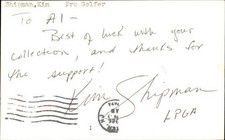 Shipman,Kim Pro Golfer
To Al-
Best of luck with your
collection, and thanks for
the support!
Kim Shipman
LPGA